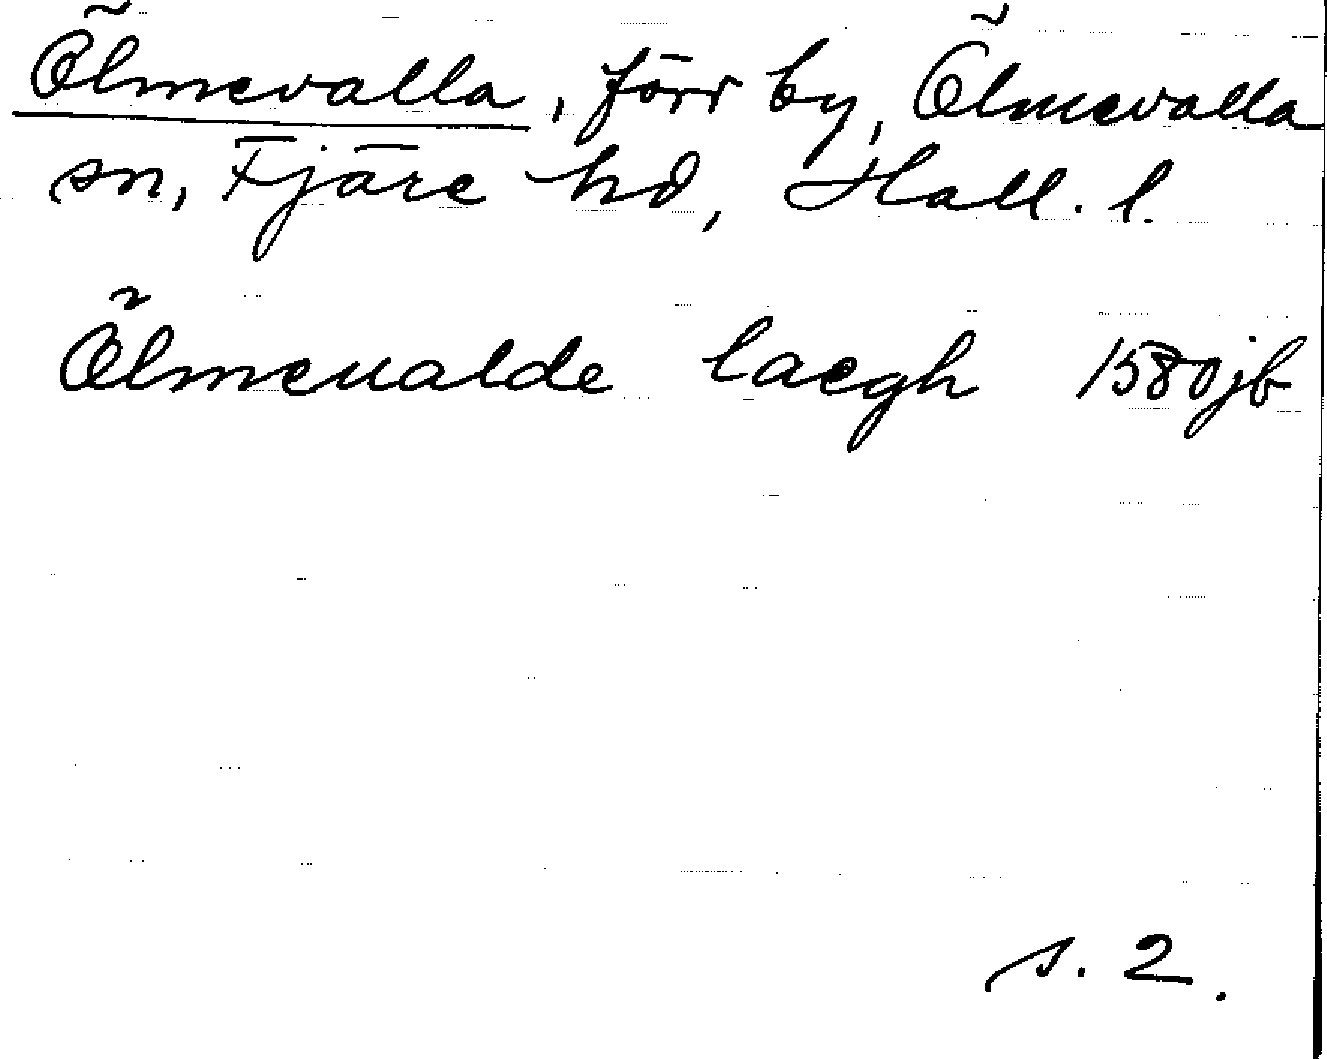 Ölmevalla, förr by, Ölmevalla
sn, Fjäre hd, Hall. l.
Ölmeualde laegh 1580 jb
s. 2.